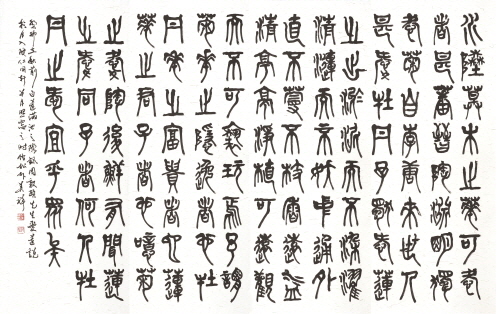 水陸草木之華可愛
者甚蕃晉陶淵明獨
愛菊自李唐來世人
甚愛牡丹予獨愛蓮
之出淤泥而不染濯
清漣而不妖中通外
直不蔓不枝香遠益
清亭亭淨植可遠觀
而不可褻玩焉予謂
菊華之隱逸者也牡
丹華之富貴者也蓮
華之君子者也噫菊
之愛陶後鮮有聞蓮
之愛同予者何人牡
丹之愛宜乎眾矣
周敦頤先生愛蓮說